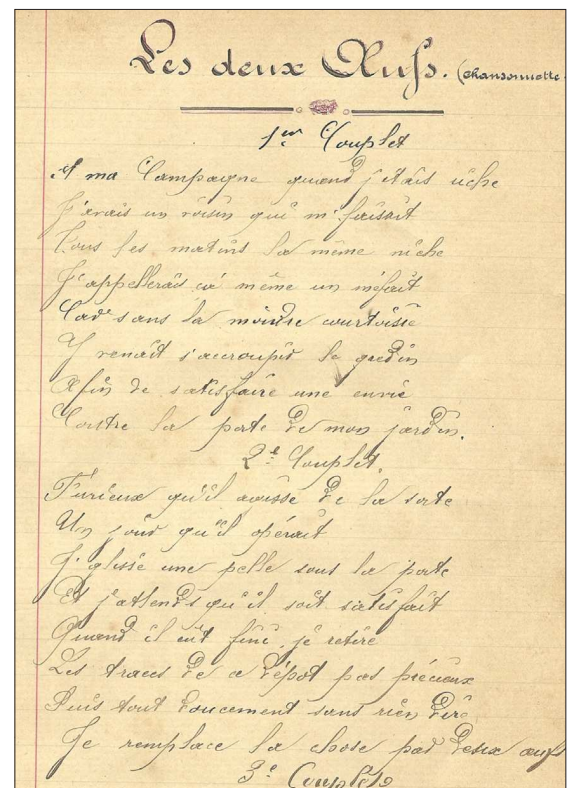 Les deux Œufs. (Chansonnette
1er Couplet
A ma Campagne quand j'étais riche
J'avais un voisin qui m'faisait
Tous les matins la même niche
J'appellerais ça même un méfait
Car sans la moindre courtoisie
Y venait s'accroupir le gredin
Afin de satisfaire une envie
Contre la porte de mon jardin.
2e Couplet.
Furieux qu'il agisse de la sorte
Un jour qu'il opérait
J'glisse une pelle sous la porte
Et j'attends qu'il soit satisfait
Quand il eut fini je retire
Les traces de ce dépot pas précieux
Puis tout doucement sans rien dire
Je remplace la chose par deux œufs
3e Couplet